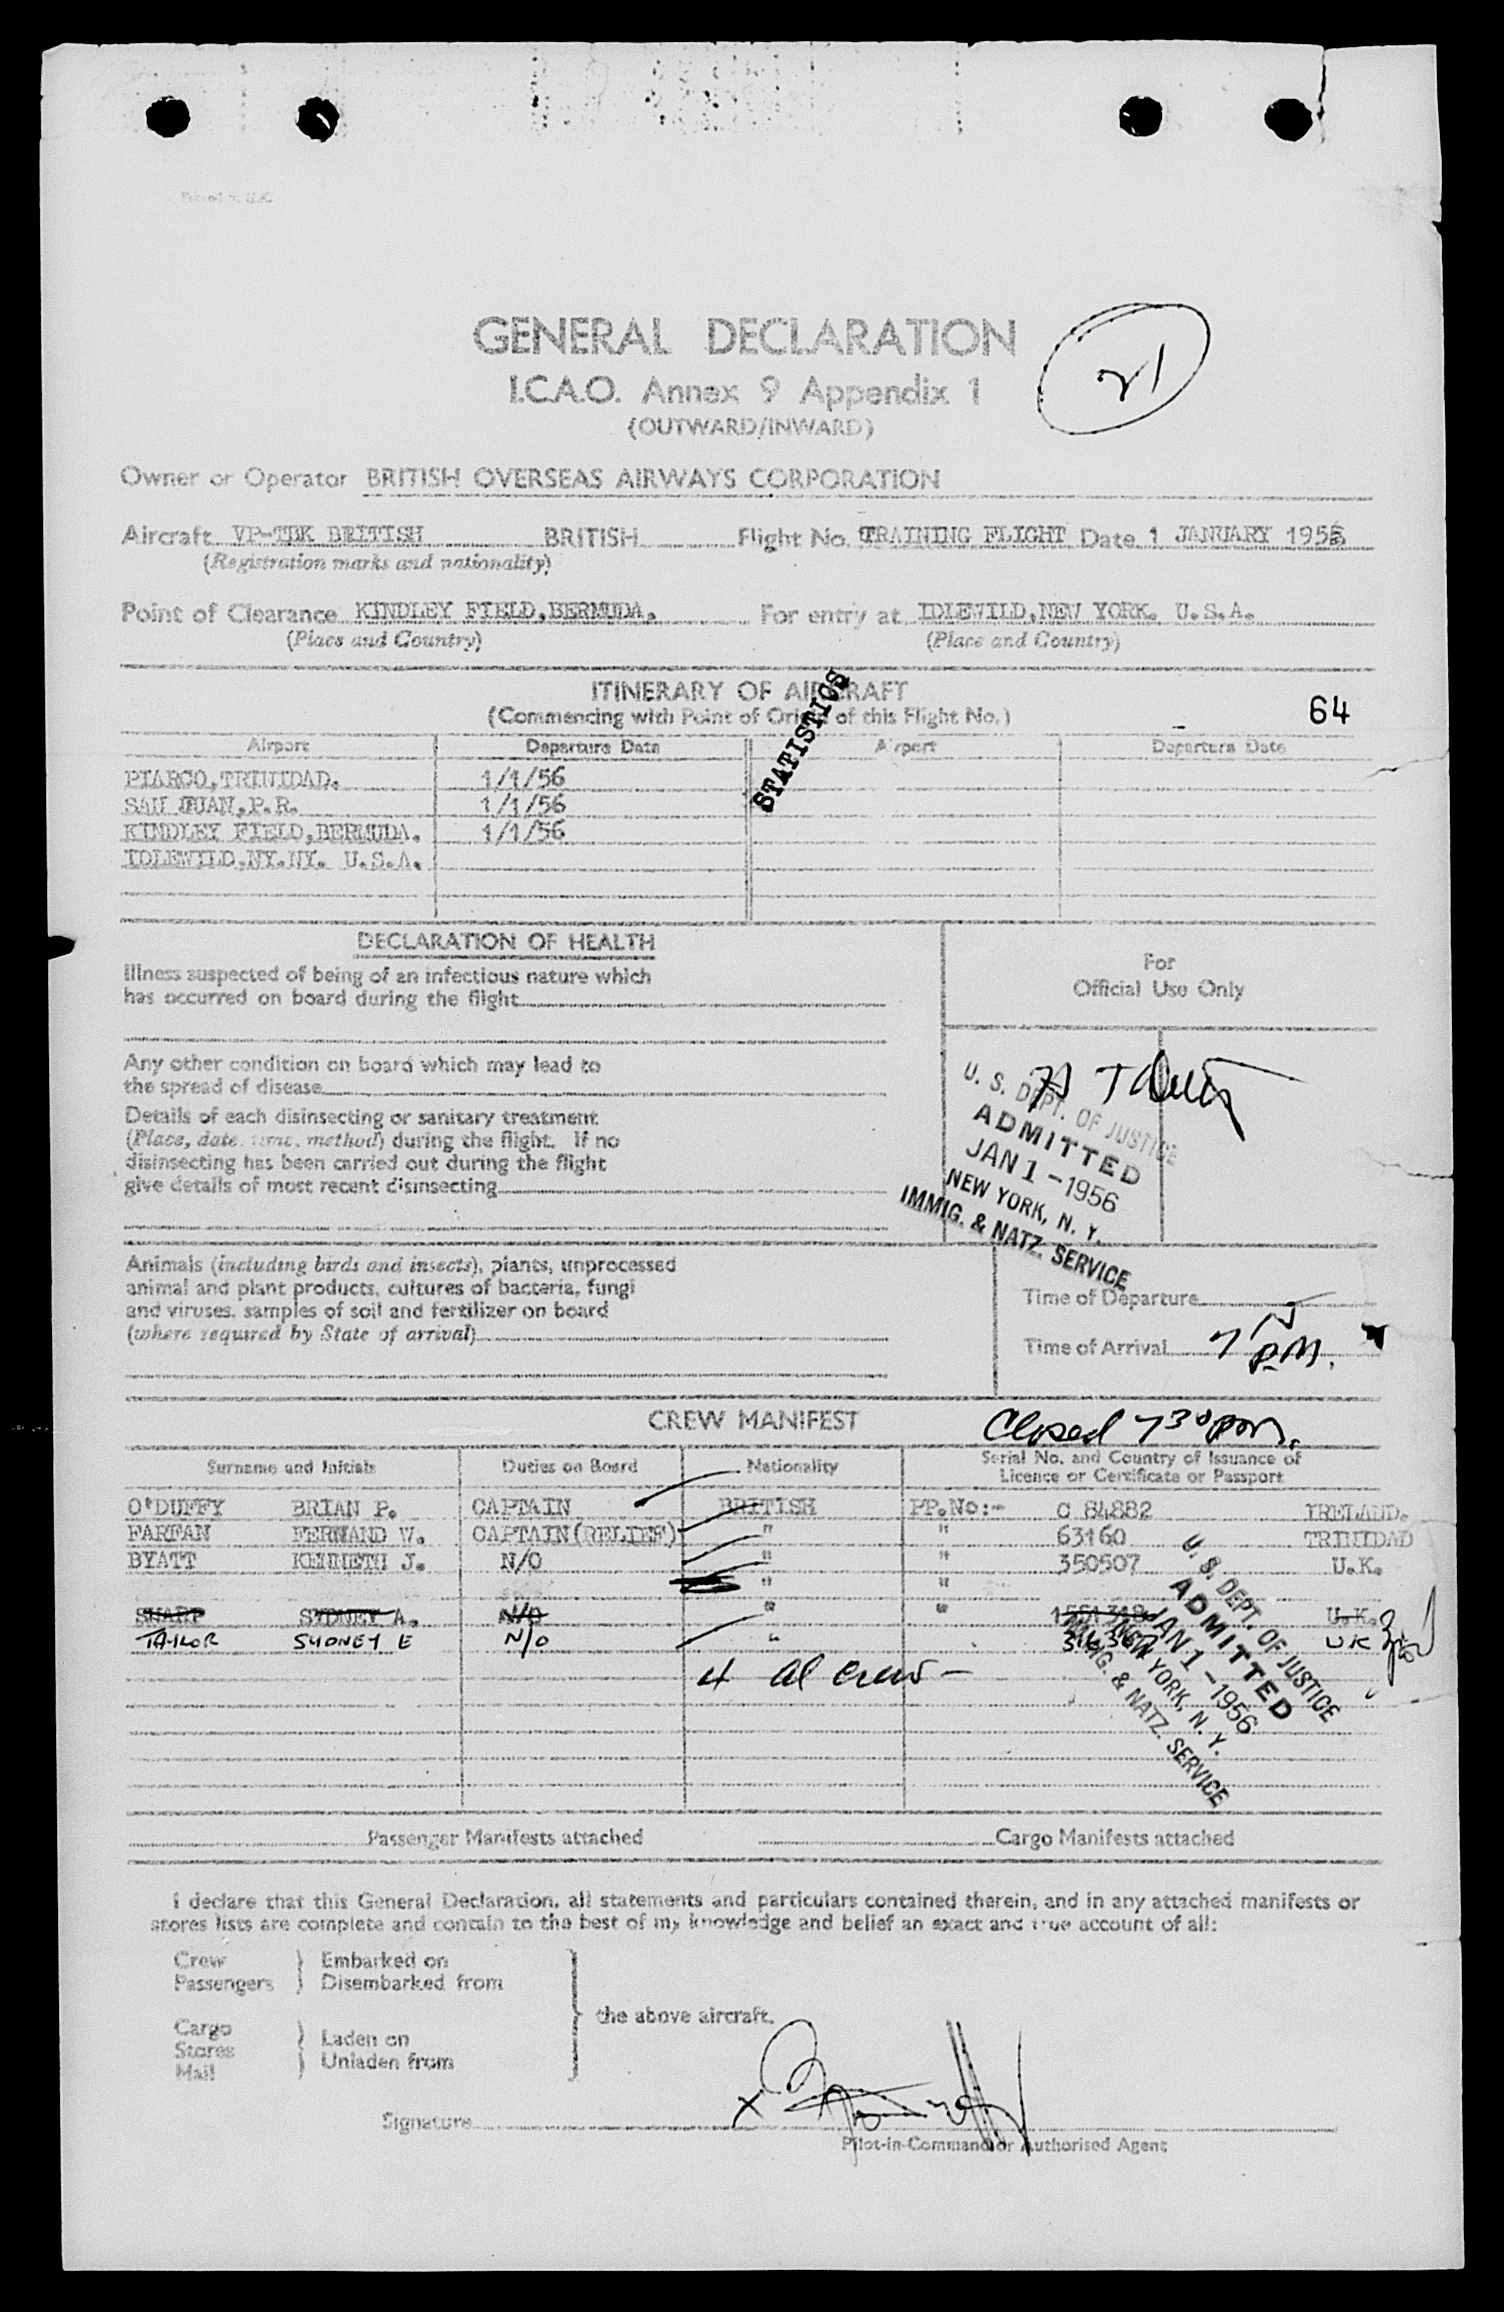 Printed in U.K.
GENERAL DECLARATION
21
I.C.A.O. Annex 9 Appendix 1
(OUTWARD/INWARD)
Owner or Operator BRITISH OVERSEAS AIRWAYS CORPORATION
Aircraft VP-TBK BRITISH BRITISH Flight No. TRAINING FLIGHT Date 1 JANUARY 1956
(Registration marks and nationality)
Point of Clearance KINDLEY FIELD,BERMUDA. For entry at IDLEWILD,NEW YORK. U.S.A.
(Place and Country) (Place and Country)
ITINERARY OF AIRCRAFT
(Commencing with Point of Origin of this Flight No.)
64
STATISTICS
Airport Departure Date Airport Departure Date
PIARCO,TRINIDAD. 1/1/56
SAN JUAN,P.R. 1/1/56
KINDLEY FIELD,BERMUDA. 1/1/56
IDLEWILD,NY.NY. U.S.A.
DECLARATION OF HEALTH
Illness suspected of being of an infectious nature which
has occurred on board during the flight
For
Official Use Only
Any other condition on board which may lead to
the spread of disease
Details of each disinsecting or sanitary treatment
(Place, date, time, method) during the flight. If no
disinsecting has been carried out during the flight
give details of most recent disinsecting
U. S. DEPT. OF JUSTICE
ADMITTED
JAN 1 - 1956
NEW YORK, N. Y.
IMMIG. & NATZ. SERVICE
Animals (including birds and insects), plants, unprocessed
animal and plant products, cultures of bacteria, fungi
and viruses, samples of soil and fertilizer on board
(where required by State of arrival)
Time of Departure
Time of Arrival 7 PM.
CREW MANIFEST
Closed 7 30 pm.
Surname and Initials Duties on Board Nationality Serial No. and Country of Issuance of
Licence or Certificate or Passport
O'DUFFY BRIAN P. CAPTAIN BRITISH PP.No:- C 84882 IRELAND.
FARFAN FERNAND W. CAPTAIN(RELIEF) " " 63160 TRINIDAD
BYATT KENNETH J. N/O " " 350507 U.K.
" "
SHARP SYDNEY A. N/O " " U.K.
TAYLOR SYDNEY E N/O " UK
4 al crew -
U. S. DEPT. OF JUSTICE
ADMITTED
JAN 1 - 1956
NEW YORK, N. Y.
IMMIG. & NATZ. SERVICE
Passenger Manifests attached Cargo Manifests attached
I declare that this General Declaration, all statements and particulars contained therein, and in any attached manifests or
stores lists are complete and contain to the best of my knowledge and belief an exact and true account of all:
Crew Embarked on
Passengers Disembarked from
the above aircraft.
Cargo Laden on
Stores Unladen from
Mail
Signature X
Pilot-in-Command or Authorised Agent